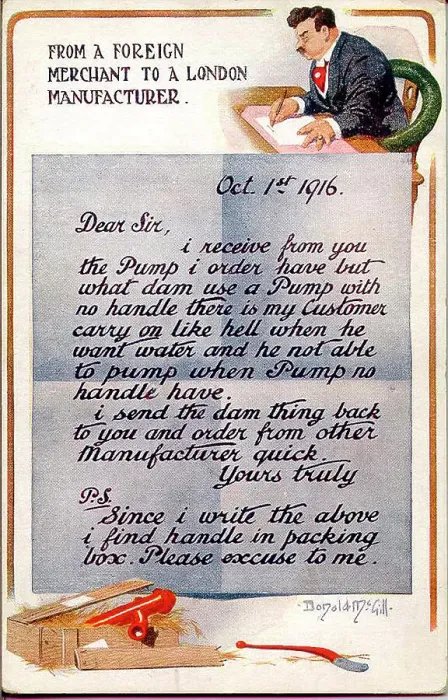 FROM A FOREIGN
MERCHANT TO A LONDON
MANUFACTURER.
Oct. 1st 1916.
Dear Sir,
i receive from you
the Pump i order have but
what dam use a Pump with
no handle there is my Customer
carry on like hell when he
want water and he not able
to pump when Pump no
handle have.
i send the dam thing back
to you and order from other
Manufacturer quick.
Yours truly
P.S.
Since i write the above
i find handle in packing
box. Please excuse to me.
-Donald McGill-